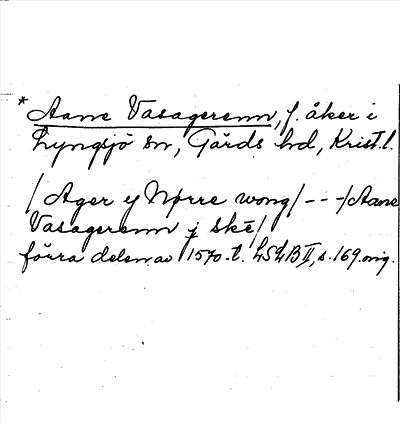 * Aane Vasagerenn, f. åker i
Lyngsjö sn, Gärds hd, Krist.l.
/Ager ej Nørre wong/ - - -/Aane
Vasagerenn j ske/
förra delen av 1570-t. LSLB II, s. 169 orig.